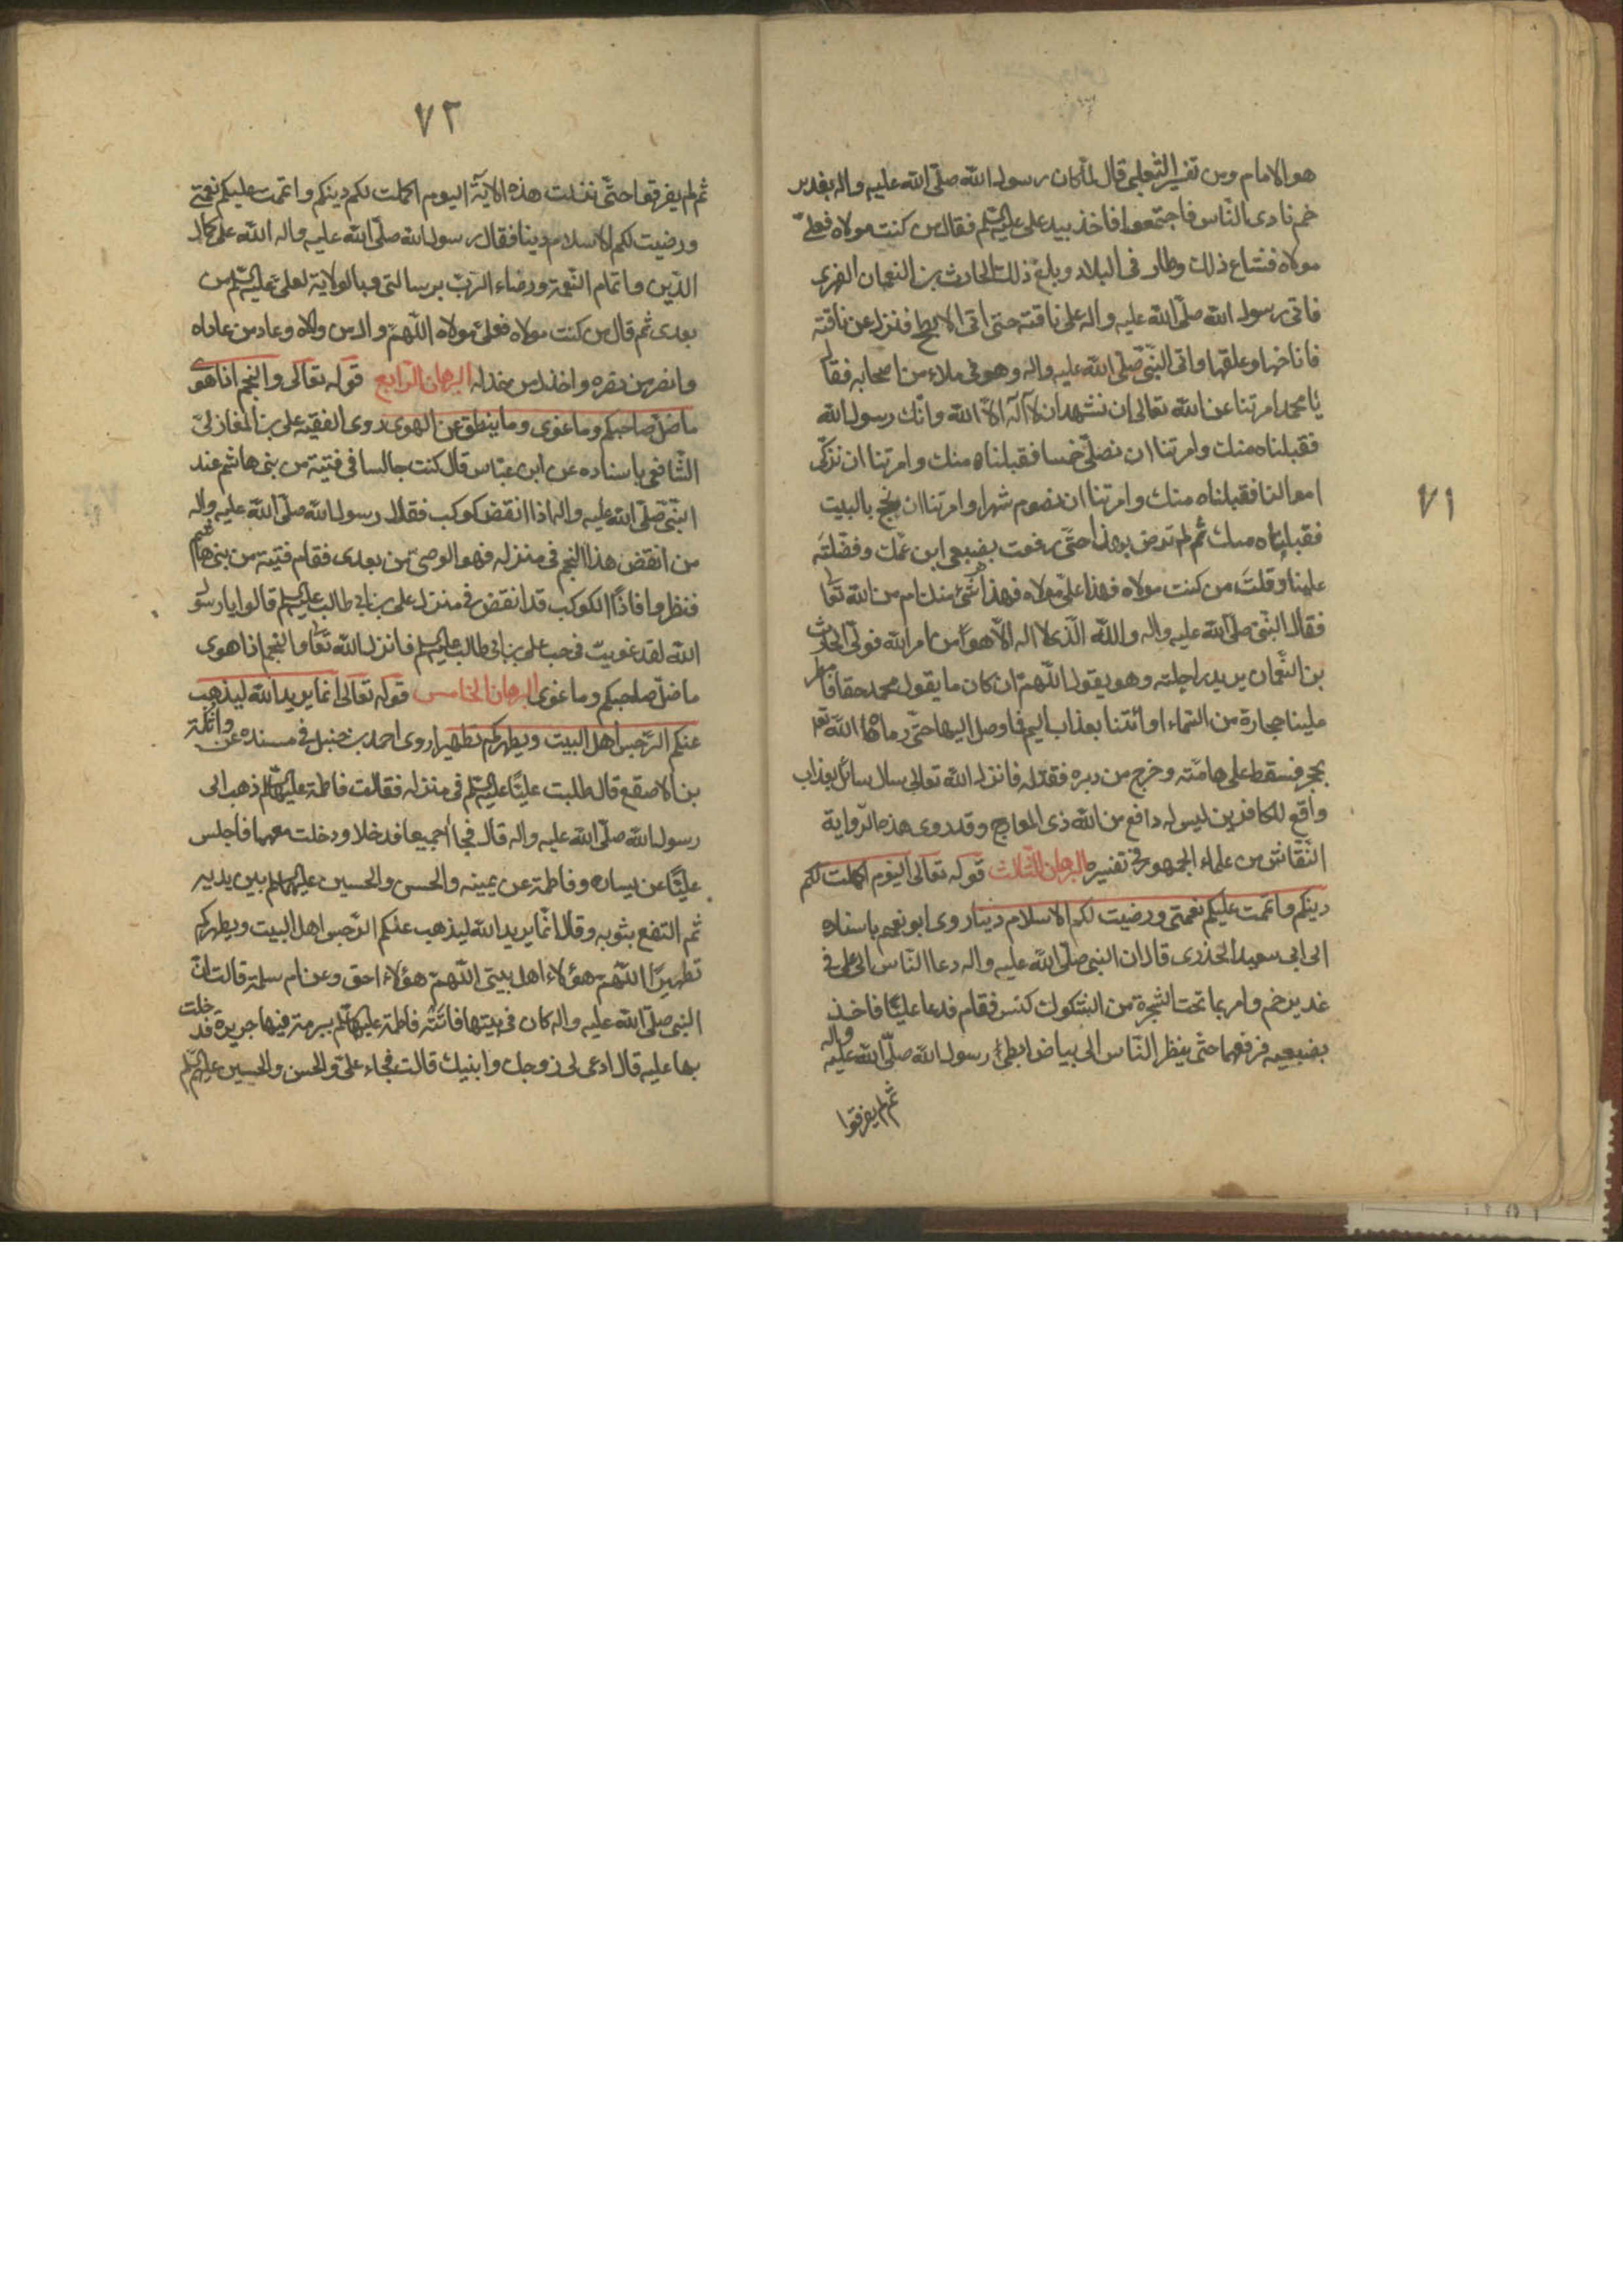 ٧١
هو الامام ومن تفسير الثعلبى قال لما كان رسول الله صلّى الله عليه واله بغدير
خم نادى النّاس فاجتمعوا فاخذ بيد على عليه السلم فقال من كنت مولاه فعلىّ
مولاه فشاع ذلك وطار فى البلاد وبلغ ذلك الحادث بن النعمان الفهرى
فاتى رسول الله صلّى الله عليه واله على ناقته حتى اتى الابطح فنزل عن ناقته
فاناخها وعلقها واتى النّبىّ صلّى الله عليه واله وهو فى ملاء من اصحابه فقال
يا محمد امرتنا عن الله تعالى ان نشهد ان لا آله الّا الله وانّك رسول الله
فقبلناه منك وامرتنا ان نصلّى خمسا فقبلناه منك وامرتنا ان نزكّى
اموالنا فقبلناه منك وامرتنا ان نصوم شهرا وامرتنا ان نحج بالبيت
فقبلناه منك ثم لم ترض بهذا حتّى رفعت بضبعى ابن عمّك وفضّلته
علينا وقلت من كنت مولاه فهذا علىّ مولاه فهذا شئ منك ام من الله تعا
فقال النّبىّ صلّى الله عليه واله والله الّذى لا اله الّا هو من امر الله فولّى الحادث
بن النّعمان يريد راحلته وهو يقول اللّهمّ ان كان ما يقول محمد حقا فامطر
علينا حجارة من السّماء او ائتنا بعذاب اليم فما وصل اليها حتّى رماه الله تعا
بحجر فسقط على هامّته وخرج من دبره فقتله فانزل الله تعالى سال سائل بعذاب
واقع للكافرين ليس له دافع من الله ذى المعارج وقد روى هذه الرّواية
النّقّاش من علماء الجمهور فى تفسيره البرهان الثّالث قوله تعالى اليوم اكملت لكم
دينكم واتممت عليكم نعمتى ورضيت لكم الاسلام دينا روى ابو نعيم باسناده
الى ابى سعيد الخدرى قال ان النبى صلّى الله عليه واله دعا النّاس الى على فى
غدير خم وامر بما تحت الشجرة من الشكوك كنس فقام فدعا عليّا فاخذ
بضبعيه فرفعهما حتّى ينظر النّاس الى بياض ابطى رسول الله صلّى الله عليه واله
ثم لم يفرقوا
٧٢
ثم لم يفرقوا حتّى نزلت هذه الاية اليوم اكملت لكم دينكم واتممت عليكم نعمتى
ورضيت لكم الاسلام دينا فقال رسول الله صلّى الله عليه واله الله على كمال
الدّين واتمام النّعمة ورضاء الرّبّ برسالتى وبالولاية لعلىّ عليه السلم من
بعدى ثم قال من كنت مولاه فعلىّ مولاه اللّهمّ وال من والاه وعاد من عاداه
وانصر من نصره واخذل من خذله البرهان الرّابع قوله تعالى والنجم اذا هوى
ما ضلّ صاحبكم وما غوى وما ينطق عن الهوى روى الفقيه على بن المغازلىّ
الشّافعى باسناده عن ابن عبّاس قال كنت جالسا فى فتية من بنى هاشم عند
النّبىّ صلّى الله عليه واله اذا انقض كوكب فقال رسول الله صلّى الله عليه واله
من انقض هذا النجم فى منزله فهو الوصىّ من بعدى فقام فتية من بنى هاشم
فنظروا فاذا الكوكب قد انقض فى منزل على بن ابى طالب عليه السلم قالوا يا رسول
الله لقد غويت فى حب على بن ابى طالب عليه السلم فانزل الله تعا والنجم اذا هوى
ما ضلّ صاحبكم وما غوى البرهان الخامس قوله تعالى انما يريد الله ليذهب
عنكم الرّجس اهل البيت ويطهركم تطهيرا روى احمد بن حنبل فى مسنده عن واثلة
بن الاصقع قال طلبت عليّا عليه السلم فى منزله فقالت فاطمة عليها السلم ذهب الى
رسول الله صلّى الله عليه واله قال فجا اجميعا فدخلا ودخلت معهما فاجلس
عليّا عن يساره وفاطمة عن يمينه والحسن والحسين عليهما السلم بين يديه
ثم التفع بثوبه وقال انّما يريد الله ليذهب عنكم الرّجس اهل البيت ويطهركم
تطهيرا اللّهمّ هؤلاء اهل بيتى اللّهمّ هؤلاء احق وعن ام سلمة قالت انّ
النبى صلّى الله عليه واله كان فى بيتها فاتته فاطمة عليها السلم ببرمة فيها حريرة فدخلت
بها عليه قال ادعى لى زوجك وابنيك قالت فجاء علىّ والحسن والحسين عليهم السلم